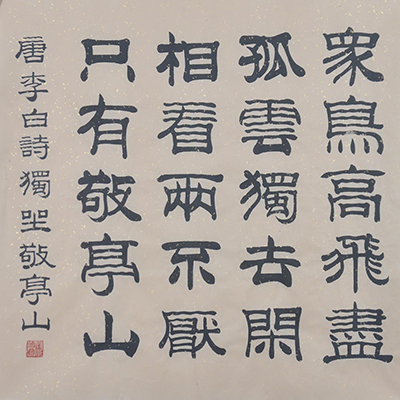 眾鳥高飛盡
孤雲獨去閑
相看兩不厭
只有敬亭山
唐李白詩獨坐敬亭山